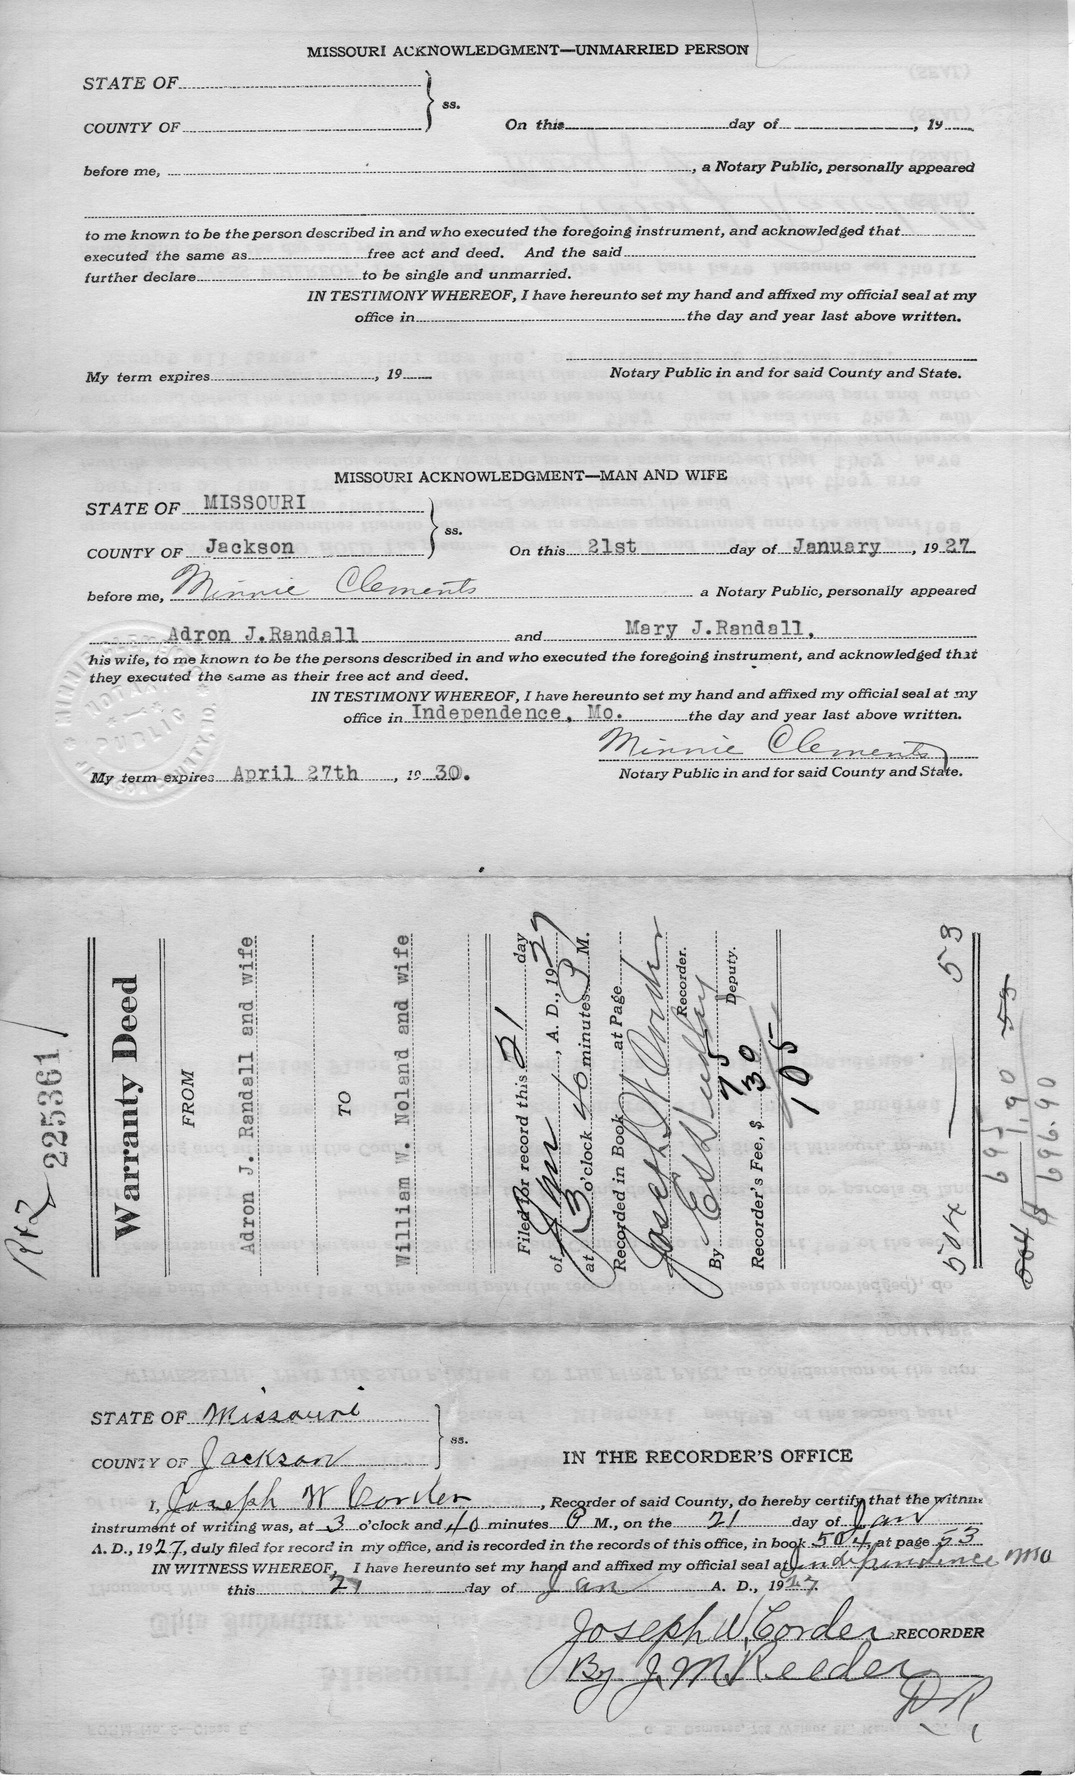 MISSOURI ACKNOWLEDGMENT—UNMARRIED PERSON
STATE OF
ss.
COUNTY OF
On this day of , 19
before me, , a Notary Public, personally appeared
to me known to be the person described in and who executed the foregoing instrument, and acknowledged that
executed the same as free act and deed. And the said
further declare to be single and unmarried.
IN TESTIMONY WHEREOF, I have hereunto set my hand and affixed my official seal at my
office in the day and year last above written.
My term expires , 19
Notary Public in and for said County and State.
MISSOURI ACKNOWLEDGMENT—MAN AND WIFE
STATE OF MISSOURI
ss.
COUNTY OF Jackson
On this 21st day of January , 1927
before me, Minnie Clements a Notary Public, personally appeared
Adron J.Randall and Mary J.Randall,
his wife, to me known to be the persons described in and who executed the foregoing instrument, and acknowledged that
they executed the same as their free act and deed.
IN TESTIMONY WHEREOF, I have hereunto set my hand and affixed my official seal at my
office in Independence, Mo. the day and year last above written.
Minnie Clements
My term expires April 27th , 19 30.
Notary Public in and for said County and State.
NOTARY
PUBLIC
225361
Warranty Deed
FROM
Adron J. Randall and wife
TO
William W. Noland and wife
Filed for record this 21 day
of Jan , A. D., 1927
at 3 o'clock 40 minutes P M.
Recorded in Book at Page
Joseph W Corder
Recorder.
By
Deputy.
75
Recorder's Fee, $ 30
105
504 — 53
695
504 190 53
$ 696.90
STATE OF Missouri
ss.
COUNTY OF Jackson
IN THE RECORDER'S OFFICE
I, Joseph W Corder , Recorder of said County, do hereby certify that the within
instrument of writing was, at 3 o'clock and 40 minutes P M., on the 21 day of Jan
A. D., 1927, duly filed for record in my office, and is recorded in the records of this office, in book 504, at page 53
IN WITNESS WHEREOF, I have hereunto set my hand and affixed my official seal at Independence Mo
this 21 day of Jan A. D., 1927.
Joseph W. Corder RECORDER
By J. M. Reeder